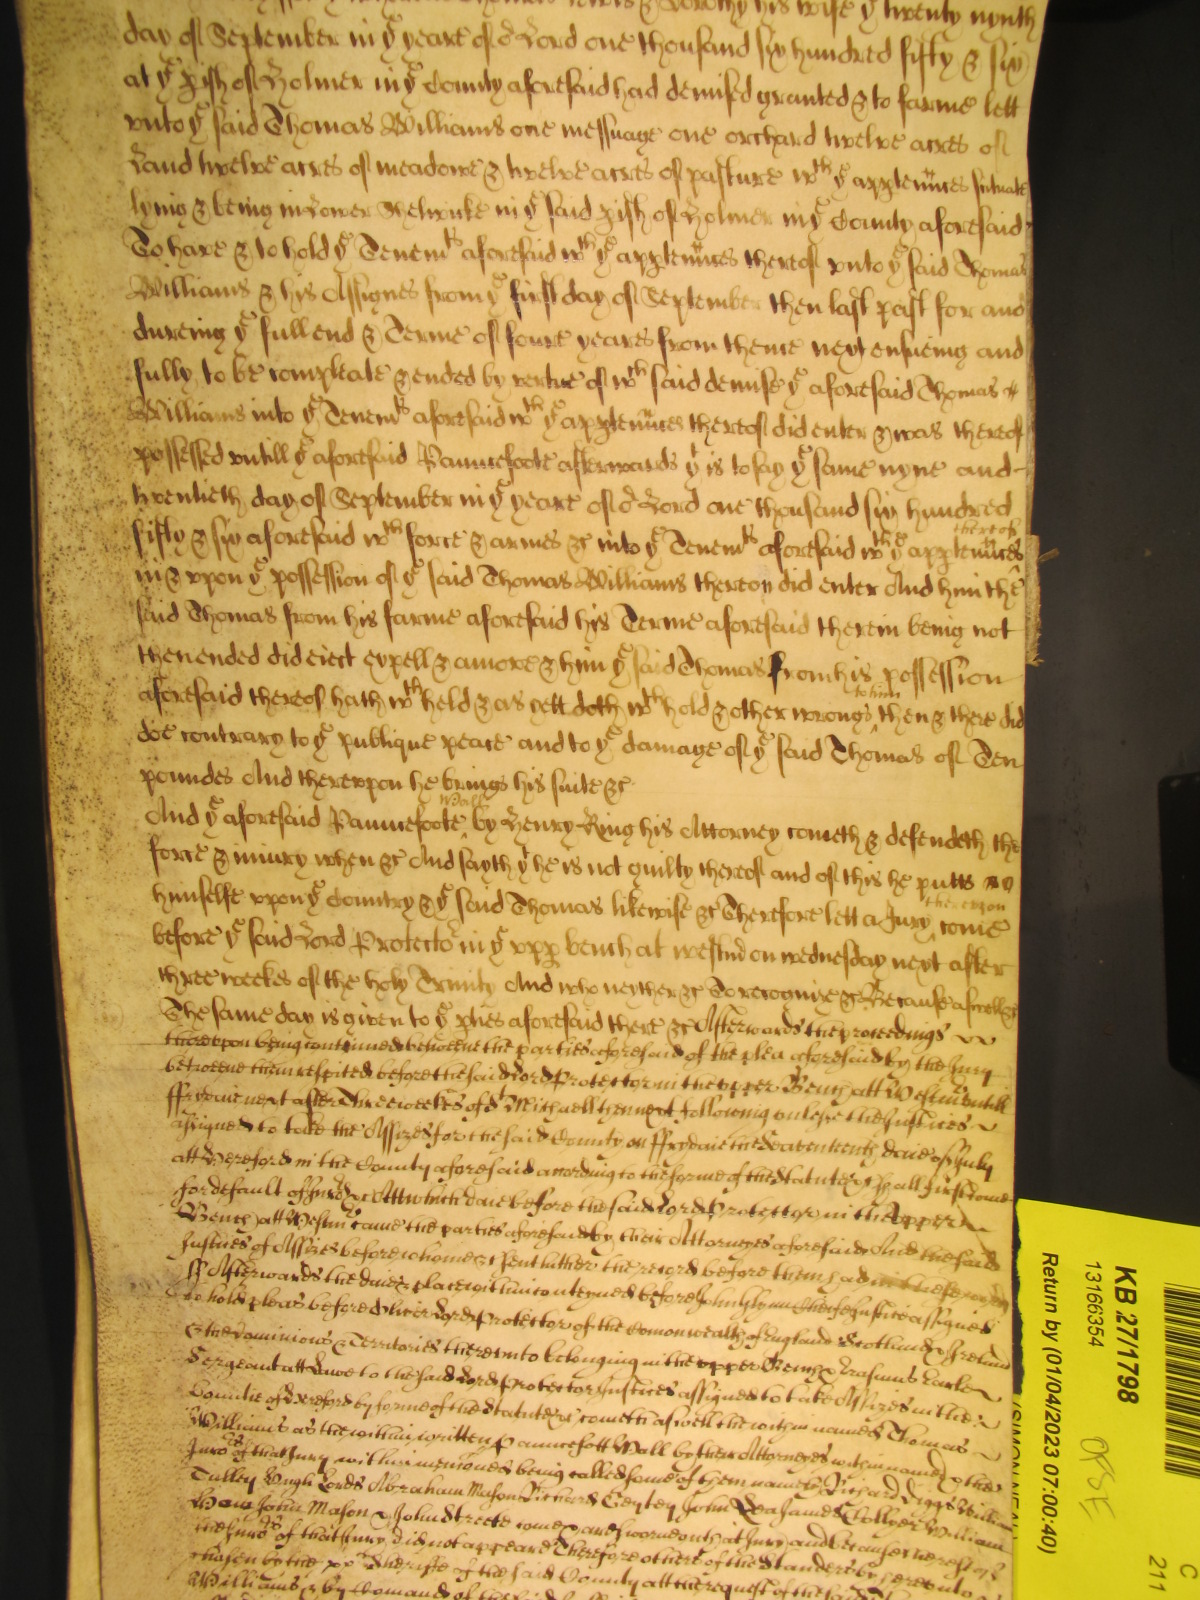 Thomas Lewis & Dorothy his wife ye twenty nynth
day of September in ye yeare of or Lord one thousand six hundred fifty & six
at ye pish of Holmer in ye County aforesaid had demised granted & to farme lett
vnto ye said Thomas Williams one messuage one orchard twelve acres of
Land twelve acres of meadowe & twelve acres of pasture wth ye apptennces situate
lying & being in Lower in ye said pish of Holmer in ye County aforesaid
To have & to hold ye Tenemts aforesaid wth ye apptennces thereof vnto ye said Thomas
Williams & his Assignes from ye first day of September then last past for and
dureing ye full end & Terme of foure yeares from thence next ensueing and
fully to be compleate & ended by vertue of wch said demise ye aforesaid Thomas
Williams into ye Tenemts aforesaid wth ye apptennces thereof did enter & was thereof
possessed vntill ye aforesaid Pauncefoote afterwards yt is to say ye same nyne and
twentieth day of September in ye yeare of or Lord one thousand six hundred
fifty & six aforesaid wth force & armes &c into ye Tenemts aforesaid wth ye apptennces thereof
in & vpon ye possession of ye said Thomas Williams thereon did enter And him the
said Thomas from his farme aforesaid his Terme aforesaid therein being not
then ended did eiect expell & amove & him ye said Thomas from his possession
aforesaid thereof hath wth held & as yett doth wth hold & other wrongs to him then & there did
doe contrary to ye publique peace and to ye damage of ye said Thomas of Ten
poundes And therevpon he brings his suite &c
And ye aforesaid Pauncefoote Wall by Henry King his Attorney cometh & defendeth the
force & iniury when &c And sayth yt he is not guilty thereof and of this he putts
himselfe vpon ye Country & ye said Thomas likewise &c Therefore lett a Jury therevpon come
before ye said Lord Protector in ye vpp bench at Westmr on wednesday next after
three weekes of the holy Trinity And who neyther &c To recognize &c Because aswell &c
The same day is given to ye pties aforesaid there &c Afterwards the proceedings
therevpon being continued betweene the parties aforesaid of the plea aforesaid by the Jury
betweene them respited before the said Lord Protector in the vpper Bench att Westmr vntill
ffrydaie next after Three weekes of St Michaell then next following vnlesse the Justices
assigned to take the Assizes for the said County on ffrydaie the Seaventeenth daie of July
att Hereford in the County aforesaid according to the forme of the Statute &c shall first come
for default of Jurors &c Att which daie before the said Lord Protector in the vpper
Bench att Westmr came the parties aforesaid by their Attorneyes aforesaid And the said
Justices of Assizes before whome &c sent hither the record before them had in these words
ss Afterwards the daie & place within conteyned before John Glynn Cheife Justice assigned
to hold pleas before Oliver Lord Protector of the Comonwealth of England Scotland & Ireland
& the dominions & Territories therevnto belonging in the vpper Bench & Erasmus Earle
Sergeant att Lawe to the said Lord Protector Justices assigned to take Assizes in the
Countie of Hereford by forme of the Statute &c cometh aswell the within named Thomas
Williams as the within written Pauncefott Wall by their Attorneyes within named & the
Jurors of that Jury within mencioned being called some of them namely Richard William
Tulley Hugh Lords Abraham Mason Richard John James Collyer William
John Mason & John Streete come & are sworne vpon that Jury and because the rest of
the Jurors of that Jury did not appeare Therefore others of the standers by herevnto
chosen by the Sheriffe of the said County att the request of the said Thomas
Williams & by Comand of the
KB 27/1798
13166354
Return by (01/04/2023 07:00:40)
C
211